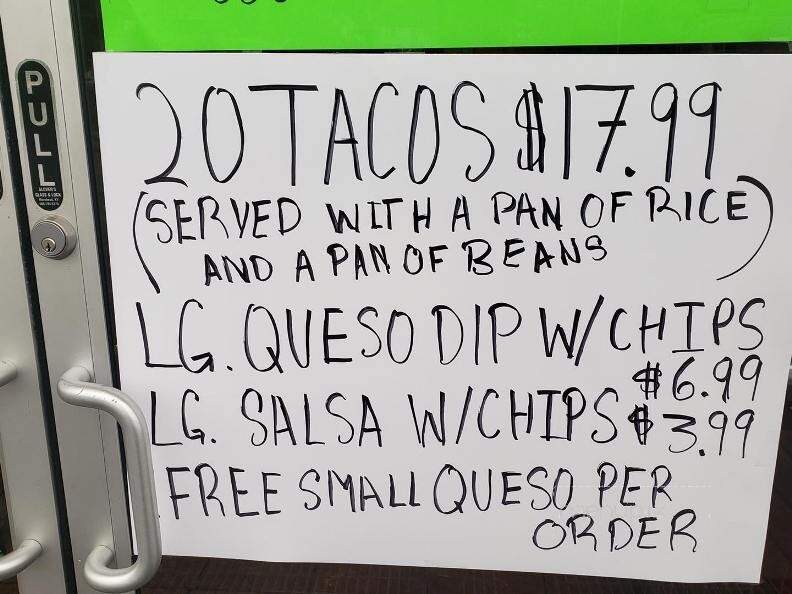 PULL
20 TACOS $17.99
(SERVED WITH A PAN OF RICE
AND A PAN OF BEANS)
LG. QUESO DIP W/CHIPS
$6.99
LG. SALSA W/CHIPS $3.99
FREE SMALL QUESO PER
ORDER